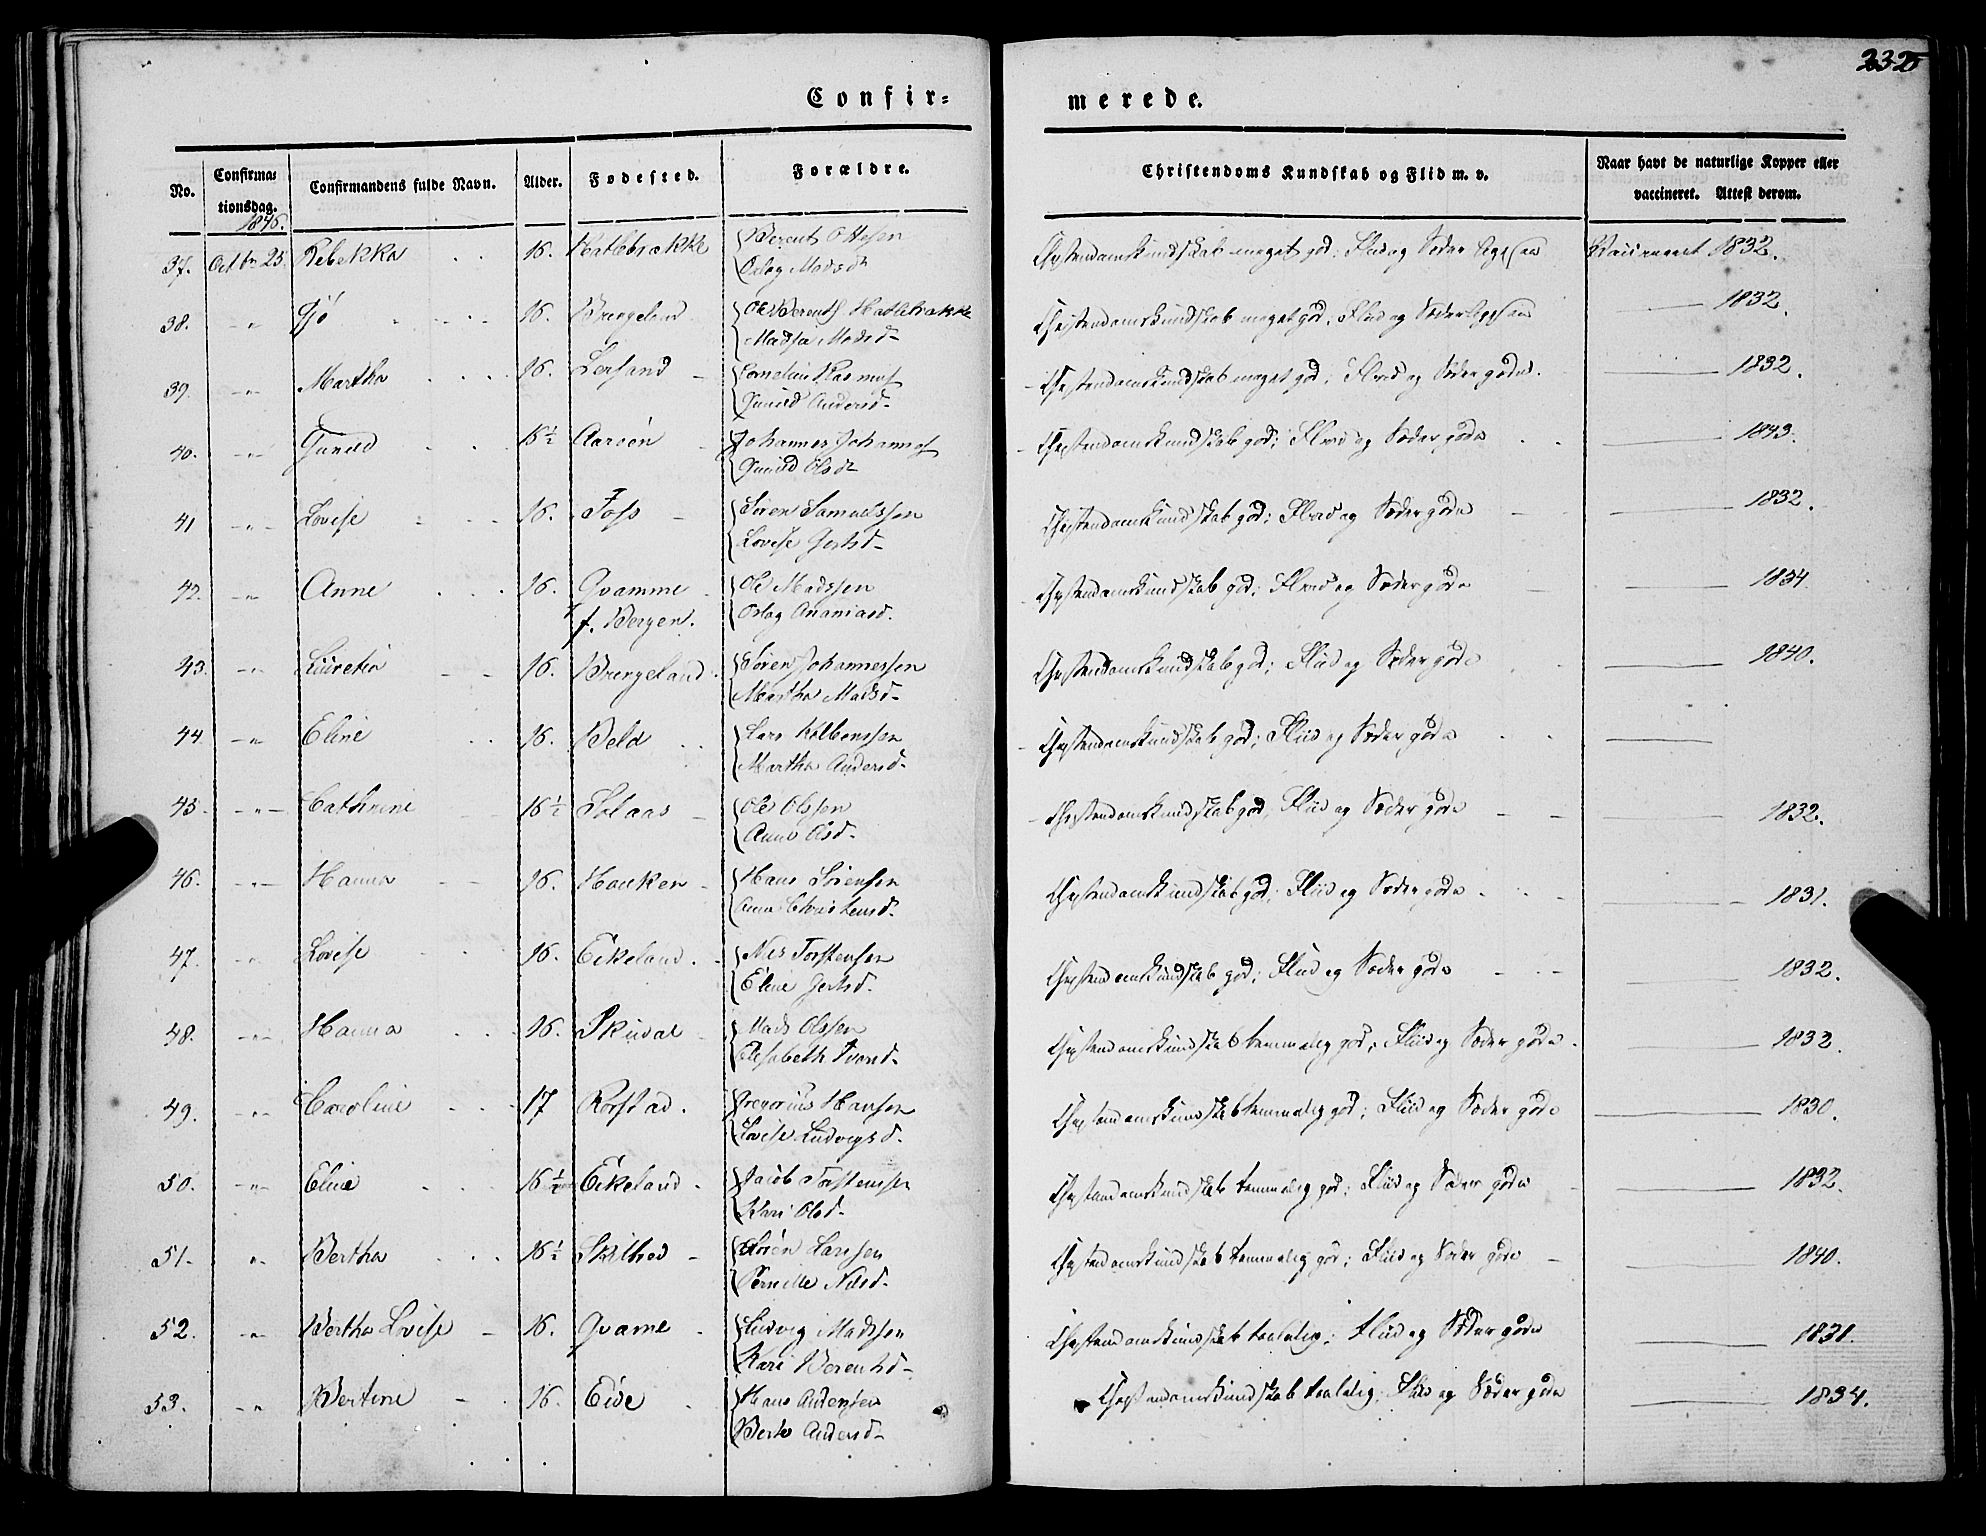 232
Confir-
merede.
No.
Confirmationsdag.
Confirmandens fulde Navn.
Alder.
Fødested.
Forældre.
Christendoms Kundskab og Flid m. v.
Naar havt de naturlige Kopper eller vaccineret. Attest derom.
37. Octbr 25. Rebekka 16. Hatlebrække Berent Ottesen Christendomskundskab meget god; Flid og Sæder Vaccineret 1832.
Madsd-
38. 16. Ole Hatlebrække Christendomskundskab meget god; Flid og Sæder 1832.
Madsd-
39. Martha 16. Christendomskundskab meget god; Flid og Sæder gode. 1832.
Gunild Andersd-
40. Gunild 16½ Aarøen Johannes Christendomskundskab god; Flid og Sæder gode 1843.
Gunild Olsd-
41 Lovise 16. Foss Søren Samuelssøn Christendomskundskab god; Flid og Sæder gode 1832.
Lovise Gertsd-
42. Anne 16. Qvamme Ole Madssen Christendomskundskab god; Flid og Sæder gode 1834
f. Bergen. Ananiasd.
43. 16. Søren Johannessen Christendomskundskab god; Flid og Sæder gode 1840.
Martha Madsd-
44 Eline 16. Lars Christendomskundskab god; Flid og Sæder gode
Martha Andersd-
45. Cathrine 16½ Solaas Ole Olssen Christendomskundskab god; Flid og Sæder gode 1832.
Anne Olsd-
46. Hanna 16. Hauken Hans Sørensen Christendomskundskab god; Flid og Sæder gode 1831.
Anne
47. Lovise 16. Eikeland Nils Torstensen Christendomskundskab god; Flid og Sæder gode 1832.
Eline Gertsd-
48. Hanna 16. Mads Olssen Christendomskundskab temmelig god; Flid og Sæder gode 1832.
Elisabeth
49. Caroline 17 Gregorius Hansen Christendomskundskab temmelig god; Flid og Sæder gode 1830.
Lovise Ludvigsd.
50. Eline 16½ Eikeland Jacob Torstensen Christendomskundskab temmelig god; Flid og Sæder gode 1832.
Kari Olsd-
51. Bertha 16½ Søren Larssen Christendomskundskab temmelig god; Flid og Sæder gode 1840.
Pernille Nilsd-
52. Bertha Lovise 16. Qvame Ludvig Madssen Christendomskundskab taalelig; Flid og Sæder gode 1831.
Kari Berentsd-
53. Bertine 16. Eide Hans Andersen Christendomskundskab taalelig; Flid og Sæder gode 1834.
Andersd-